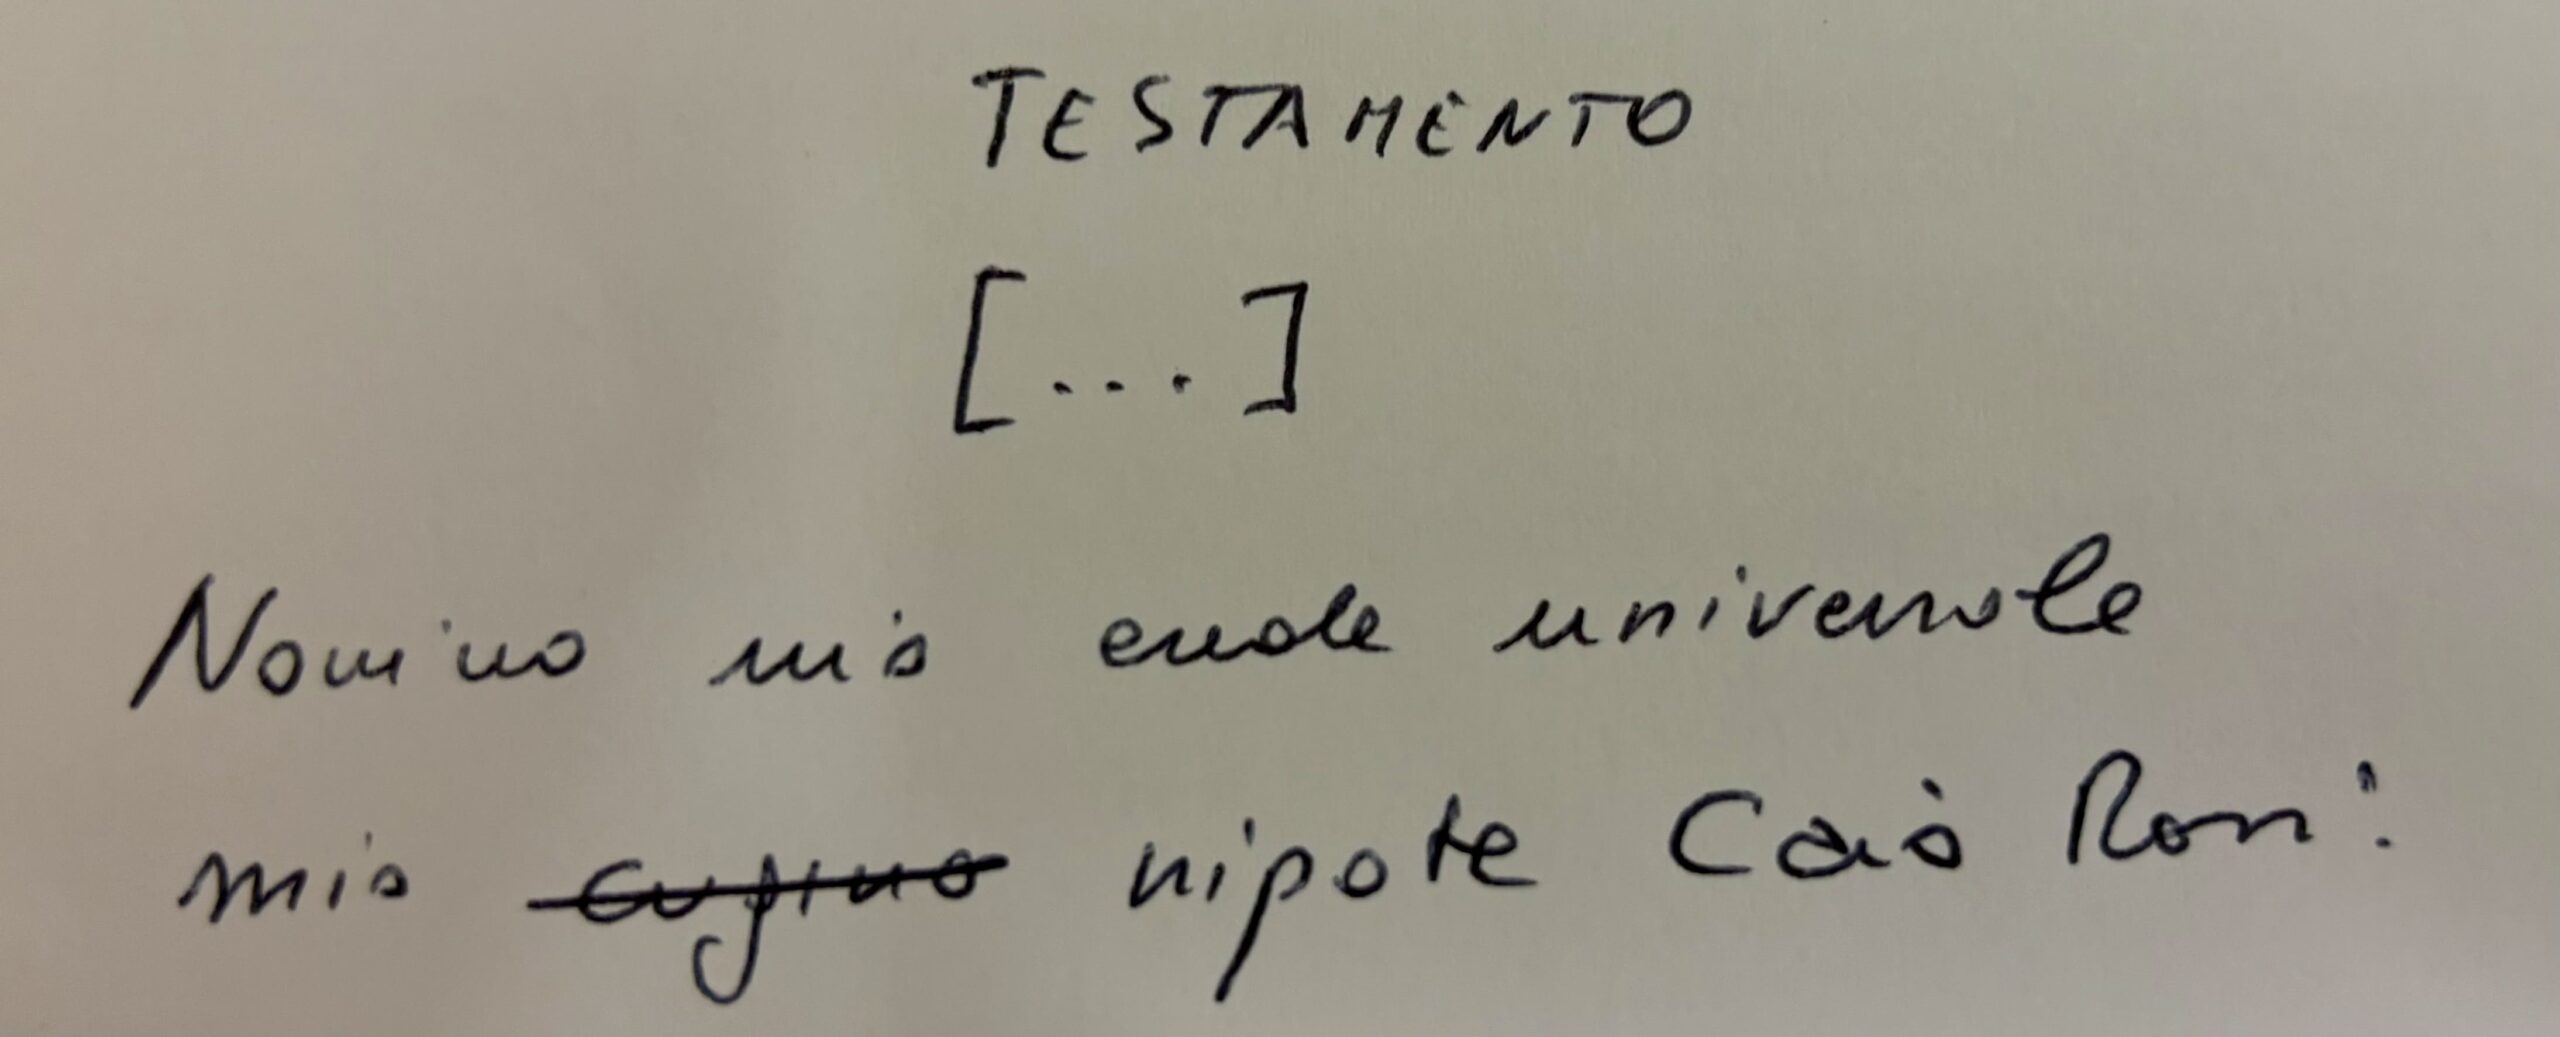 TESTAMENTO
[...]
Nomino mio erede universale
mio cugino nipote Caio Rossi.